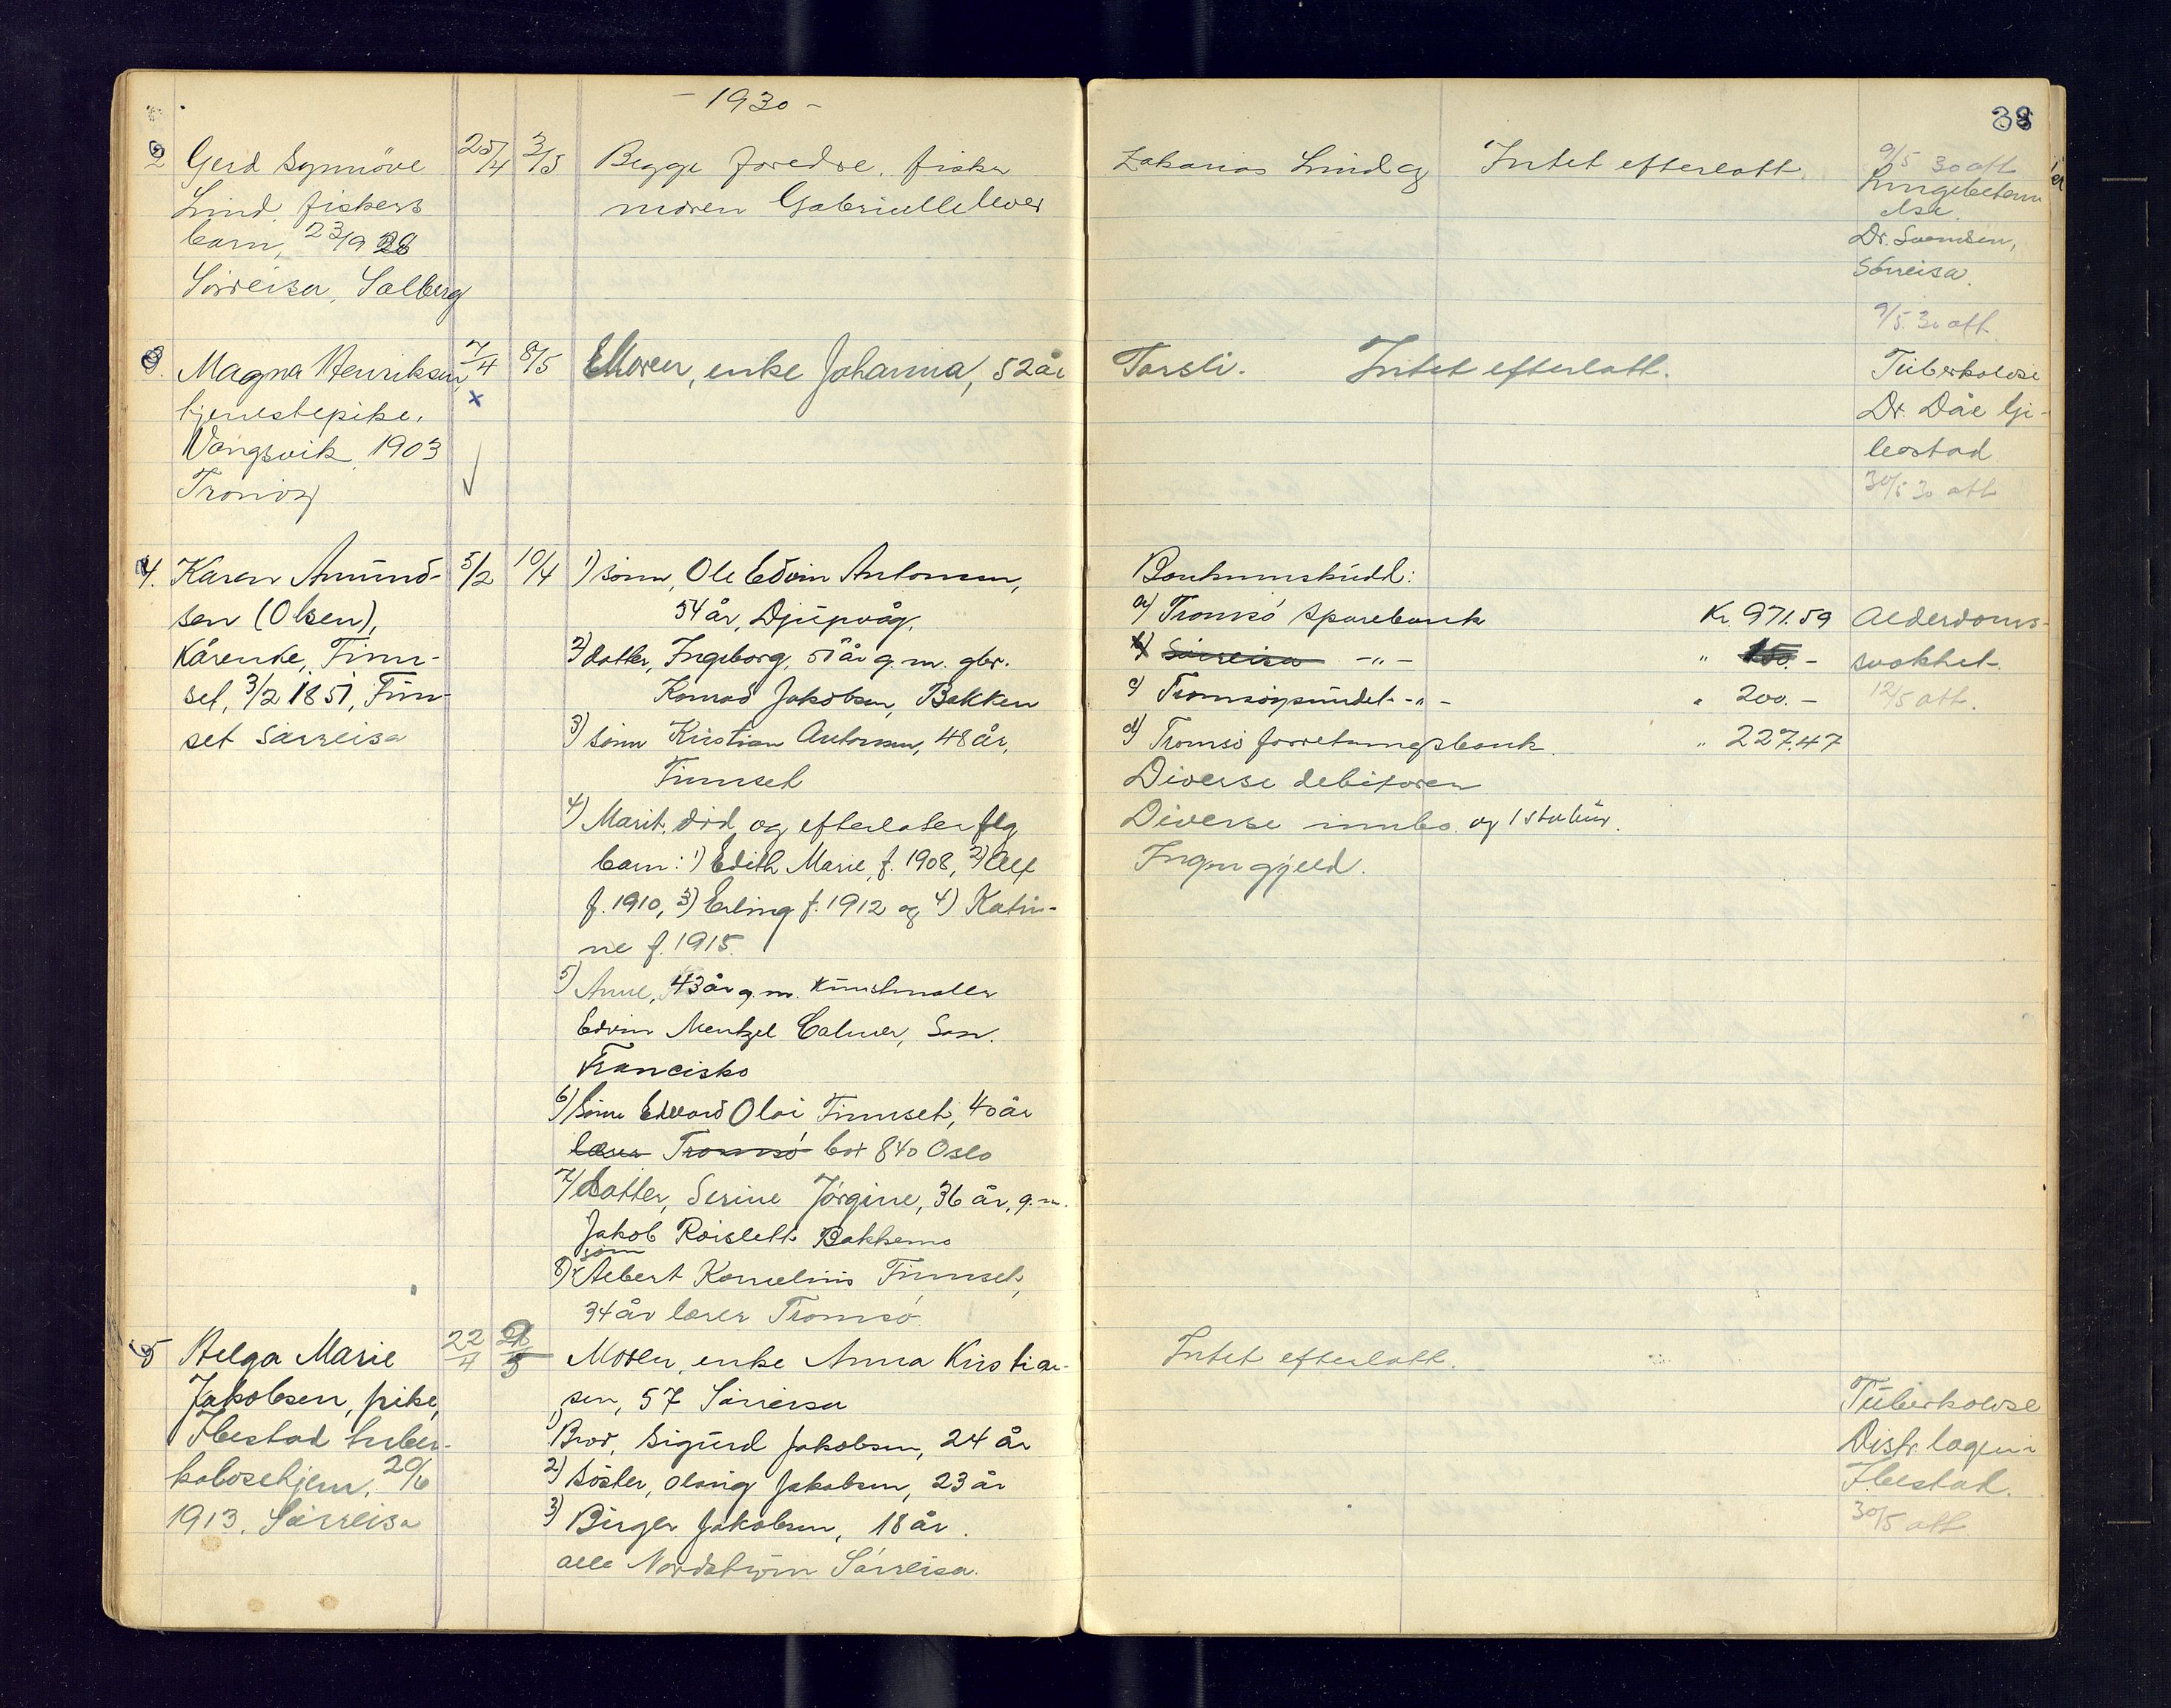 - 1930 -
38
2 Gerd Synnöve 25/4 3/5 Begge foredre, fisker Zakarias Lind og Intet efterlatt. 9/5 30 att
Lind, fiskers moren Gabrielle lever Lungebetenn
barn, 23/9 28 else.
Sörreisa, Salberg Dr. Svendsen,
Sörreisa.
9/5 30 att.
3. Magna Henriksen, 7/4 8/5 Moren, enke Johanna, 52 år Torsli. Intet efterlatt. Tuberkolose
tjenestepike, x Dr. Dåe Gi-
Vangsvik 1903 bostad
Tranöy 30/5 30 att
4. Karen Amund- 5/2 10/4 1) sönn, Ole Edvin Antonsen, Bankinnskudd:
sen (Olsen), 54 år, Djupvåg. a) Tromsö Sparebank Kr. 971.59 Alderdoms-
Kårenke, Finn- 2) datter, Ingeborg, 51 år g.m. gbr. b) Sörreisa -"- " 150.- svakhet.
set, 3/2 1851, Finn- Konrad Jakobsen, Bakken c) Tromsöysundet -"- " 200.- 12/5 att.
set Sörreisa 3) sönn Kristian Antonsen, 48 år, d) Tromsö forretningsbank. " 227.47
Finnset Diverse debitorer
4) Marit, död og efterlater flg Diverse innbo og 1 stabur.
barn: 1) Edith Marie, f. 1908, 2) Alf Ingen gjeld.
f. 1910, 3) Erling f. 1912 og 4) Katri-
ne f. 1915.
5) Anne, 43 år g.m. kunstmaler
Edvin Mentzel Calmer, San.
Francisko
6) Sönn Edvard Olai Finnset, 40 år
lærer Tromsö box 840 Oslo
7) datter, Serine Jörgine, 36 år, g.m.
Jakob Roislett Bakkemo
sönn
8) Albert Kornelius Finnset,
34 år lærer Tromsö
5 Helga Marie 22/4 5 Moren, enke Anna Kristian- Intet efterlatt.
Jakobsen, pike, sen, 57 Sörreisa Tuberkolose
Ibestad tuber- 1) Bror, Sigurd Jakobsen, 24 år Distr. lægen
kolosehjem, 20/6 2) Söster, Olaug Jakobsen, 23 år Ibestad.
1913. Sörreisa 3) Birger Jakobsen, 18 år. 30/5 att
alle Nordström Sörreisa.